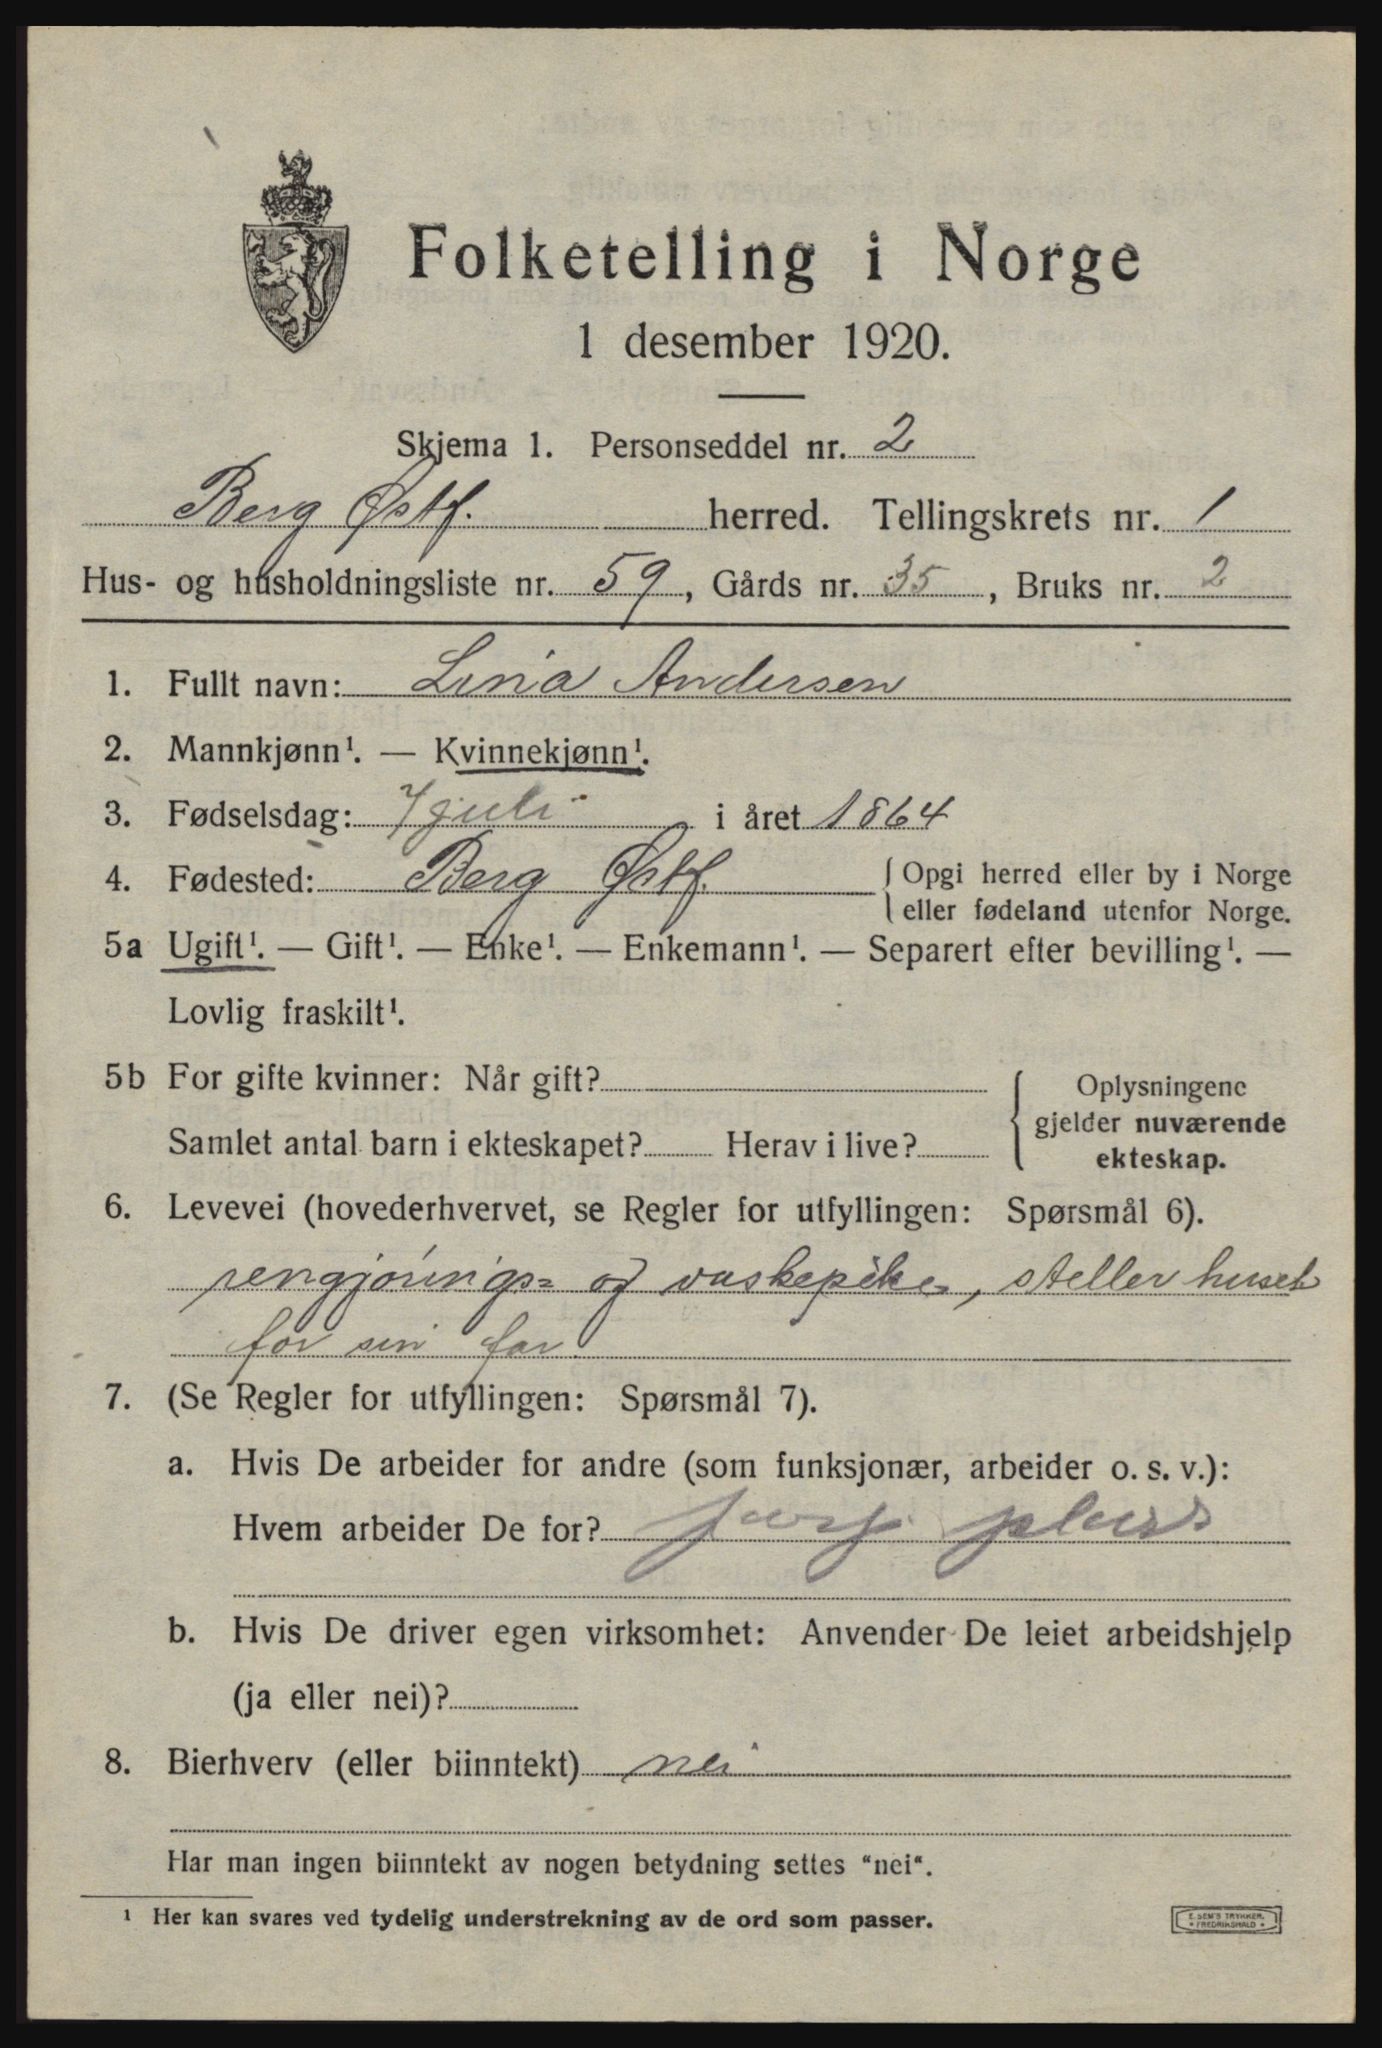 Folketelling i Norge
1 desember 1920.
Skjema 1. Personseddel nr. 2
Berg Østf. herred. Tellingskrets nr. 1
Hus- og husholdningsliste nr. 59, Gårds nr. 35, Bruks nr. 2
1. Fullt navn: Lina Andersen
2. Mannkjønn¹. — Kvinnekjønn¹.
3. Fødselsdag: 7 juli i året 1864
4. Fødested: Berg Østf. { Opgi herred eller by i Norge
eller fødeland utenfor Norge.
5a Ugift¹. — Gift¹. — Enke¹. — Enkemann¹. — Separert efter bevilling¹. —
Lovlig fraskilt¹.
5b For gifte kvinner: Når gift? { Oplysningene
gjelder nuværende
Samlet antal barn i ekteskapet? Herav i live?
ekteskap.
6. Levevei (hovederhvervet, se Regler for utfyllingen: Spørsmål 6).
rengjørings= og vaskepike, steller huset
for sin far.
7. (Se Regler for utfyllingen: Spørsmål 7).
a. Hvis De arbeider for andre (som funksjonær, arbeider o. s. v.):
Hvem arbeider De for?
b. Hvis De driver egen virksomhet: Anvender De leiet arbeidshjelp
(ja eller nei)?
8. Bierhverv (eller biinntekt) nei
Har man ingen biinntekt av nogen betydning settes “nei“.
¹ Her kan svares ved tydelig understrekning av de ord som passer.
E. SEM'S TRYKKER.
• FREDRIKSHALD •